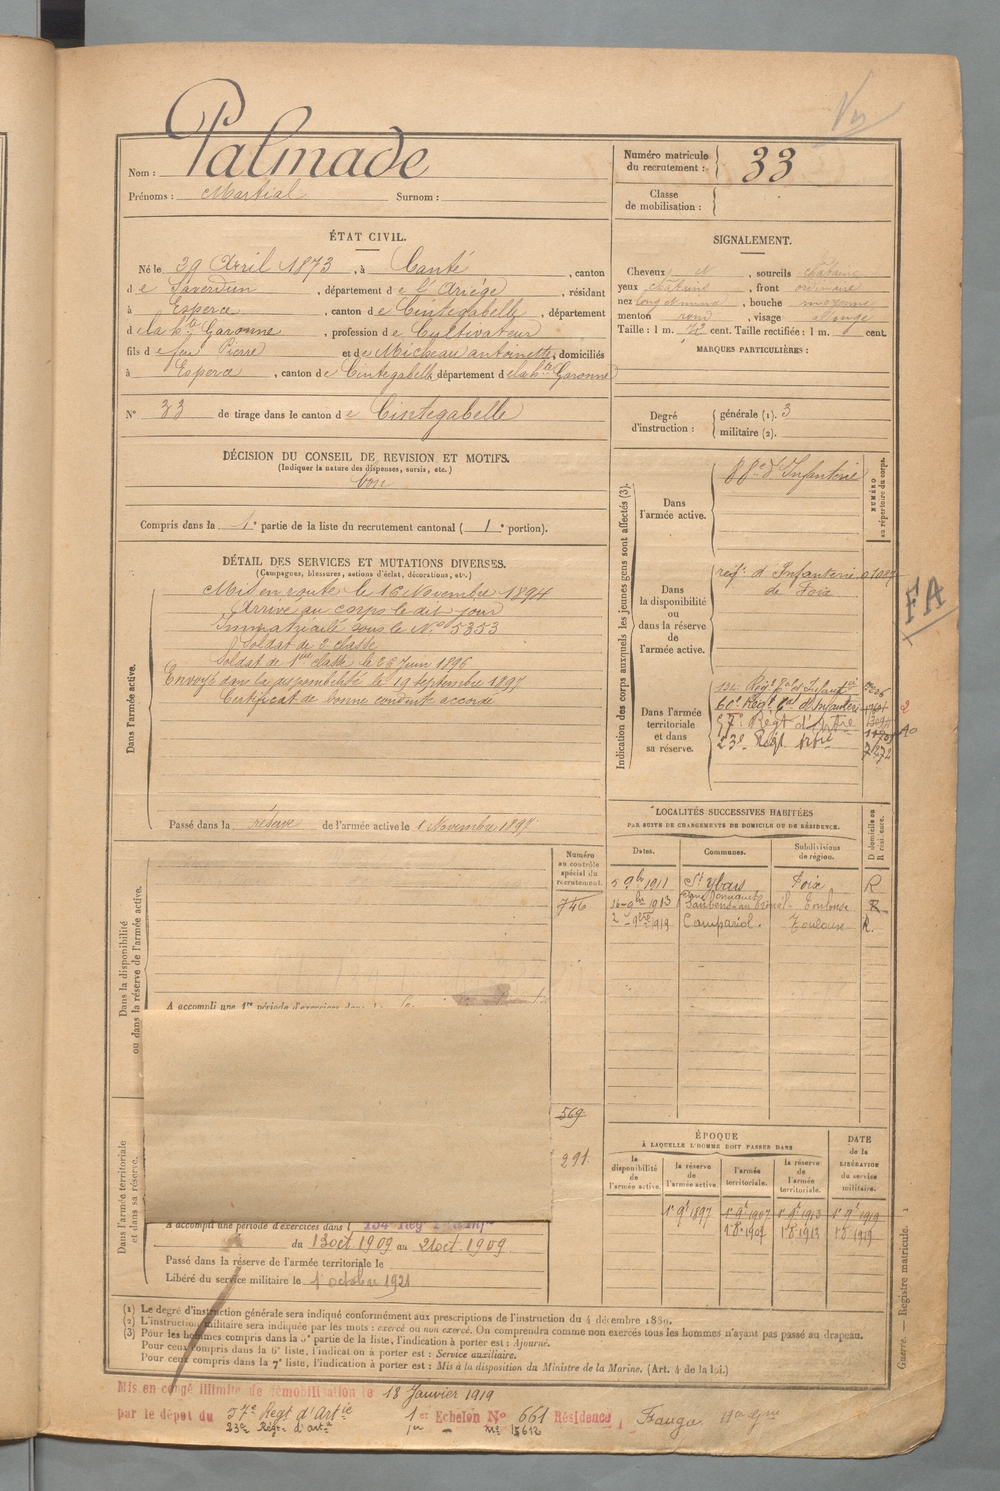 Nom : Palmade
Prénoms : Martial Surnom :
Numéro matricule
du recrutement : 33
Classe
de mobilisation :
ÉTAT CIVIL.
Né le 29 Avril 1873, à Canté, canton
de Saverdun, département de l'Ariège, résidant
à Esperce, canton de Cintegabelle, département
de la hte Garonne, profession de Cultivateur
fils de feu Pierre et de Micheau antoinette, domiciliés
à Esperce, canton de Cintegabelle, département de la hte Garonne
No 33 de tirage dans le canton de Cintegabelle
DÉCISION DU CONSEIL DE REVISION ET MOTIFS.
(Indiquer la nature des dispenses, sursis, etc.)
bon
Compris dans la 1e partie de la liste du recrutement cantonal ( 1e portion).
DÉTAIL DES SERVICES ET MUTATIONS DIVERSES.
(Campagnes, blessures, actions d'éclat, décorations, etc.)
Dans l'armée active.
Mis en route le 16 Novembre 1894
Arrivé au corps le dit jour
Immatriculé sous le No 5353
Soldat de 2 classe
Soldat de 1re classe le 26 Juin 1896
Envoyé dans la disponibilité le 19 septembre 1897
Certificat de bonne conduite accordé
Passé dans la réserve de l'armée active le 1 Novembre 1897
Numéro
au contrôle
spécial du
recrutement.
746
Dans la disponibilité
ou dans la réserve de l'armée active.
A accompli une 1re période d'exercices dans
569
291
Dans l'armée territoriale
et dans sa réserve.
A accompli une période d'exercices dans l 134 Rég
du 13 oct 1909 au 21 oct. 1909.
Passé dans la réserve de l'armée territoriale le
Libéré du service militaire le 1 octobre 1921
SIGNALEMENT.
Cheveux N, sourcils châtains
yeux châtains, front ordinaire
nez long, bouche moyenne
menton rond, visage allongé
Taille : 1 m. 72 cent. Taille rectifiée : 1 m. cent.
MARQUES PARTICULIÈRES :
Degré
d'instruction :
générale (1). 3
militaire (2).
Indication des corps auxquels les jeunes gens sont affectés (3).
NUMÉRO
au répertoire du corps.
Dans
l'armée active.
88e d'Infanterie
Dans
la disponibilité
ou
dans la réserve
de
l'armée active.
régt d'Infanterie 01087
de Foix
FA
Dans l'armée
territoriale
et dans
sa réserve.
134e Régt tal d'Infanterie
60e Régt tal d'Infanterie
57e Regt d'Artie
23e Regt Artie
LOCALITÉS SUCCESSIVES HABITÉES
PAR SUITE DE CHANGEMENTS DE DOMICILE OU DE RÉSIDENCE.
Dates. Communes. Subdivisions
de région. D domicile ou
R résidence.
5 9bre 1911 St Ybars Foix R
16-9bre 1913 Toulouse R
2 9bre 1919 Campariol. Toulouse R.
ÉPOQUE
À LAQUELLE L'HOMME DOIT PASSER DANS
DATE
de la
LIBÉRATION
du service
militaire.
la
disponibilité
de
l'armée active.
la réserve
de
l'armée active.
l'armée
territoriale.
la réserve
de
l'armée
territoriale.
1e 9e 1897 1e 9e 1907 1e 9e 1913 1e 9e 1919
1e 8e 1907 1e 8e 1913 1e 8e 1919
(1) Le degré d'instruction générale sera indiqué conformément aux prescriptions de l'instruction du 4 décembre 1889.
(2) L'instruction militaire sera indiquée par les mots : exercé ou non exercé. On comprendra comme non exercés tous les hommes n'ayant pas passé au drapeau.
(3) Pour les hommes compris dans la 5e partie de la liste, l'indication à porter est : Ajourné.
Pour ceux compris dans la 6e liste, l'indication à porter est : Service auxiliaire.
Pour ceux compris dans la 7e liste, l'indication à porter est : Mis à la disposition du Ministre de la Marine. (Art. 4 de la loi.)
Guerre. — Registre matricule. 1
Mis en congé illimité de démobilisation le 18 Janvier 1919
par le dépot du 57e Regt d'Artie 1er Echelon No 661 Résidence Frauga Hte Gne
23e Régt. d'arta No 15612